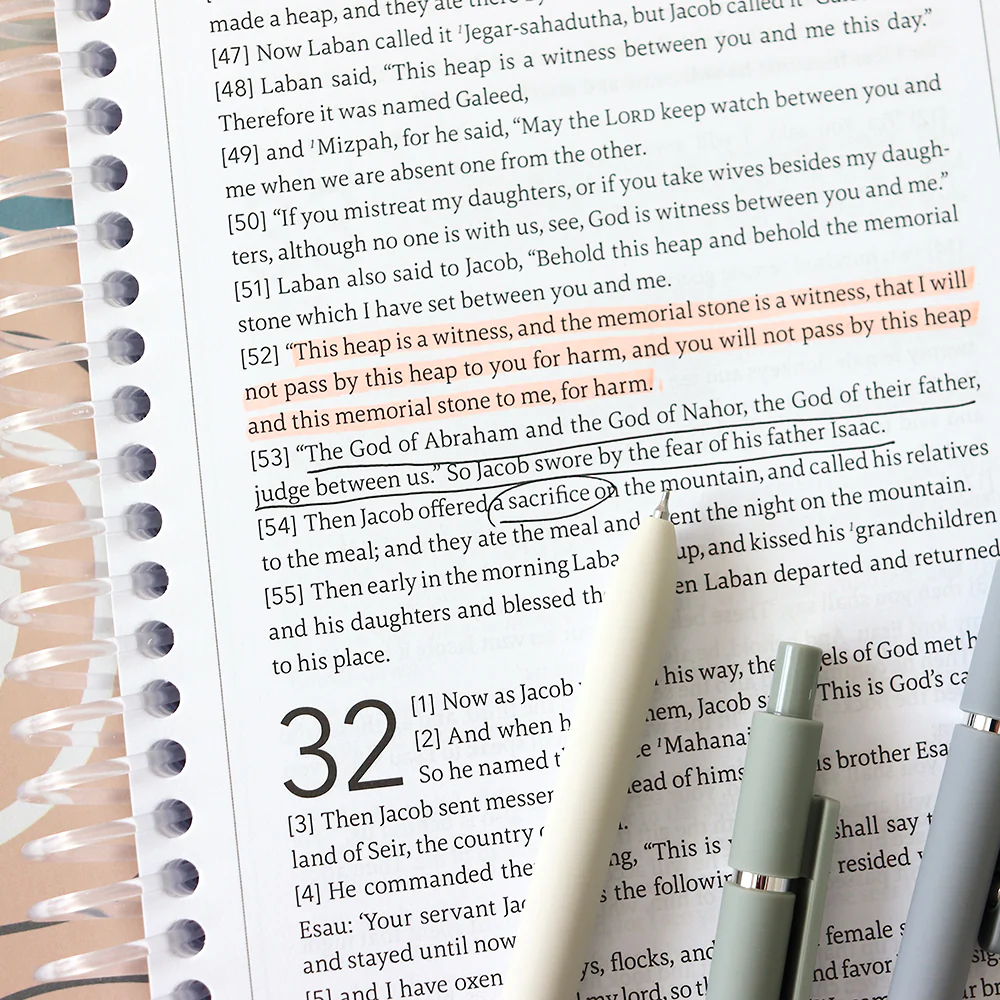 made a heap, and they ate there by
[47] Now Laban called it ¹Jegar-sahadutha, but Jacob called it
[48] Laban said, “This heap is a witness between you and me this day.”
Therefore it was named Galeed,
[49] and ¹Mizpah, for he said, “May the LORD keep watch between you and
me when we are absent one from the other.
[50] “If you mistreat my daughters, or if you take wives besides my daugh-
ters, although no one is with us, see, God is witness between you and me.”
[51] Laban also said to Jacob, “Behold this heap and behold the memorial
stone which I have set between you and me.
[52] “This heap is a witness, and the memorial stone is a witness, that I will
not pass by this heap to you for harm, and you will not pass by this heap
and this memorial stone to me, for harm.
[53] “The God of Abraham and the God of Nahor, the God of their father,
judge between us.” So Jacob swore by the fear of his father Isaac.
[54] Then Jacob offered a sacrifice on the mountain, and called his relatives
to the meal; and they ate the meal and ent the night on the mountain.
[55] Then early in the morning Laba up, and kissed his ¹grandchildren
and his daughters and blessed th en Laban departed and returned
to his place.
32
[1] Now as Jacob his way, the els of God met h
[2] And when h hem, Jacob s This is God’s ca
So he named t e ¹Mahanai
[3] Then Jacob sent messen ead of hims is brother Esa
land of Seir, the country
[4] He commanded the ng, “This is shall say t
Esau: ‘Your servant Jac s the followin resided
and stayed until now
[5] and I have oxen ys, flocks, and female s
my lord, so th nd favor